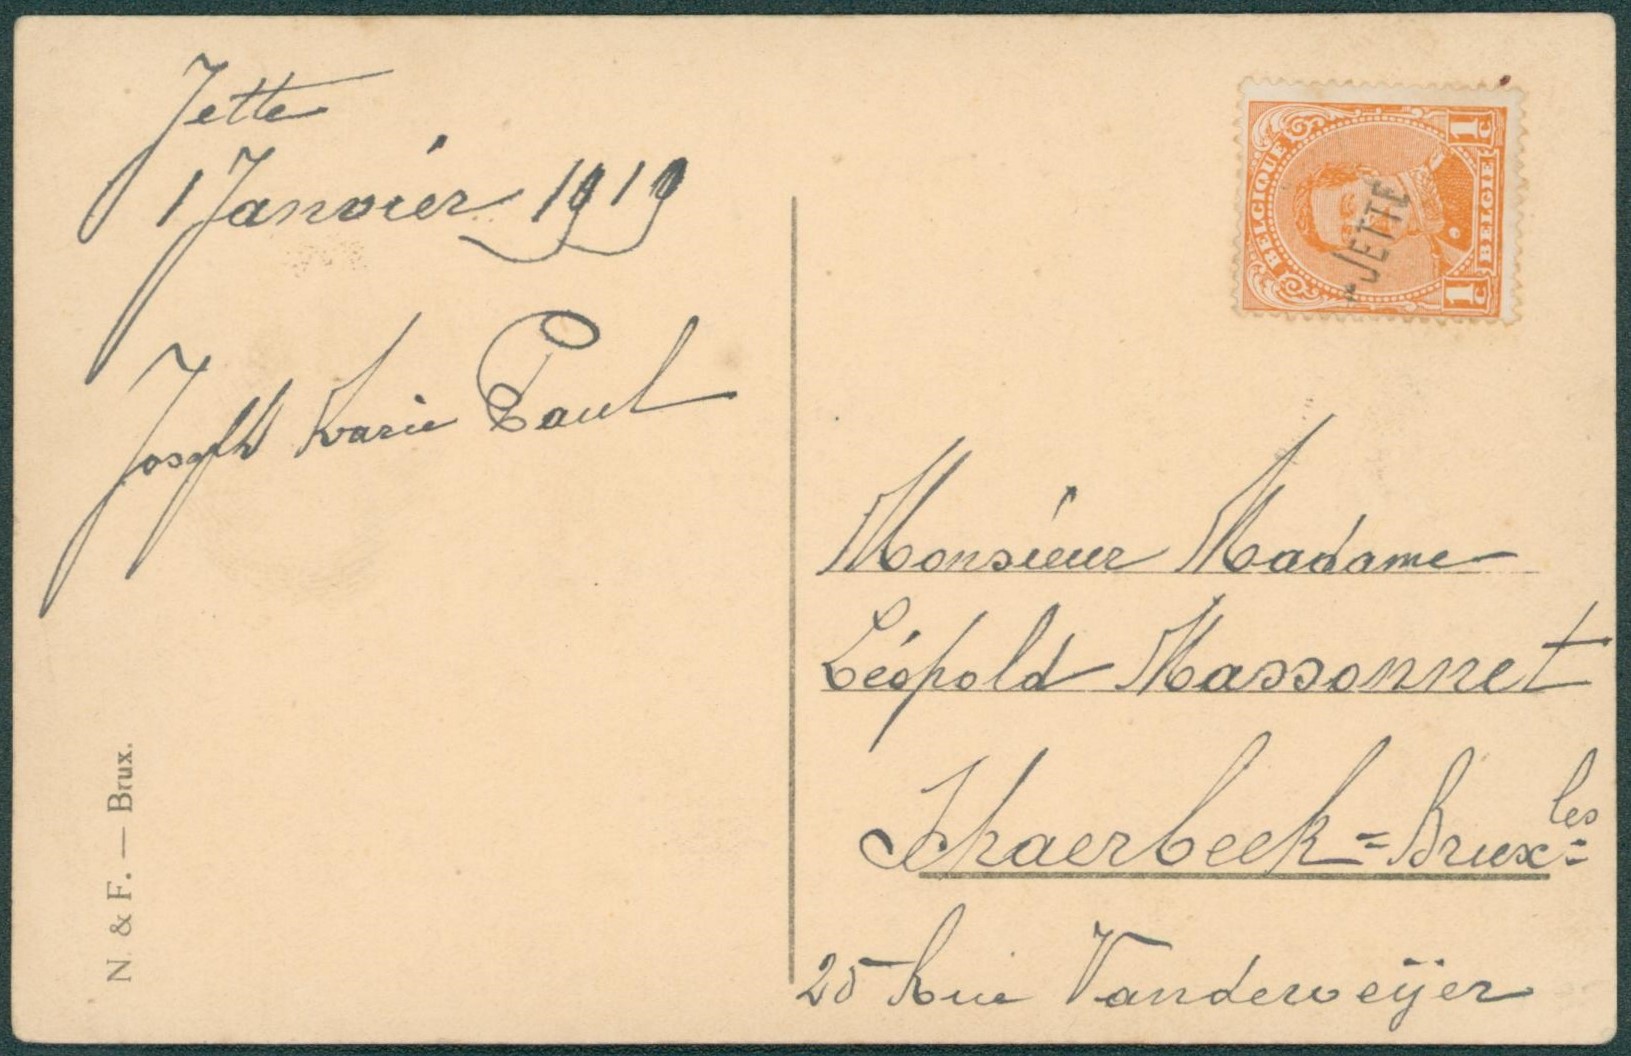 Jette
1 Janvier 1919
Joseph Marie Paul
N. & F. — Brux.
BELGIQUE
1c
BELGIË
1c
JETTE
Monsieur Madame
Léopold Massonnet
Schaerbeek = Bruxles =
25 Rue Vanderweÿer